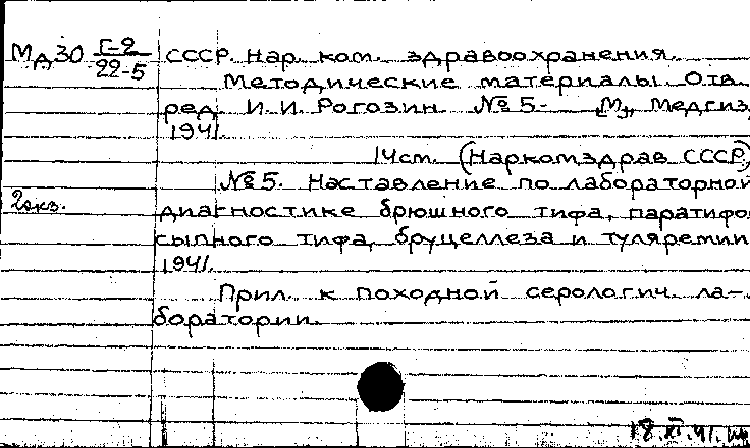 МД30 Г-2/22-5 СССР. Нар. ком. здравоохранения.
Методические материалы. Отв.
ред. И. И. Рогозин. № 5- [М.], Медгиз,
1941.
14см. (Наркомздрав СССР)
№ 5. Наставление по лабораторной
2экз. диагностике брюшного тифа, паратифо
сыпного тифа, бруцеллеза и туляремии
1941.
Прил. к походной серологич. ла-
боратории.
18.XI.41.